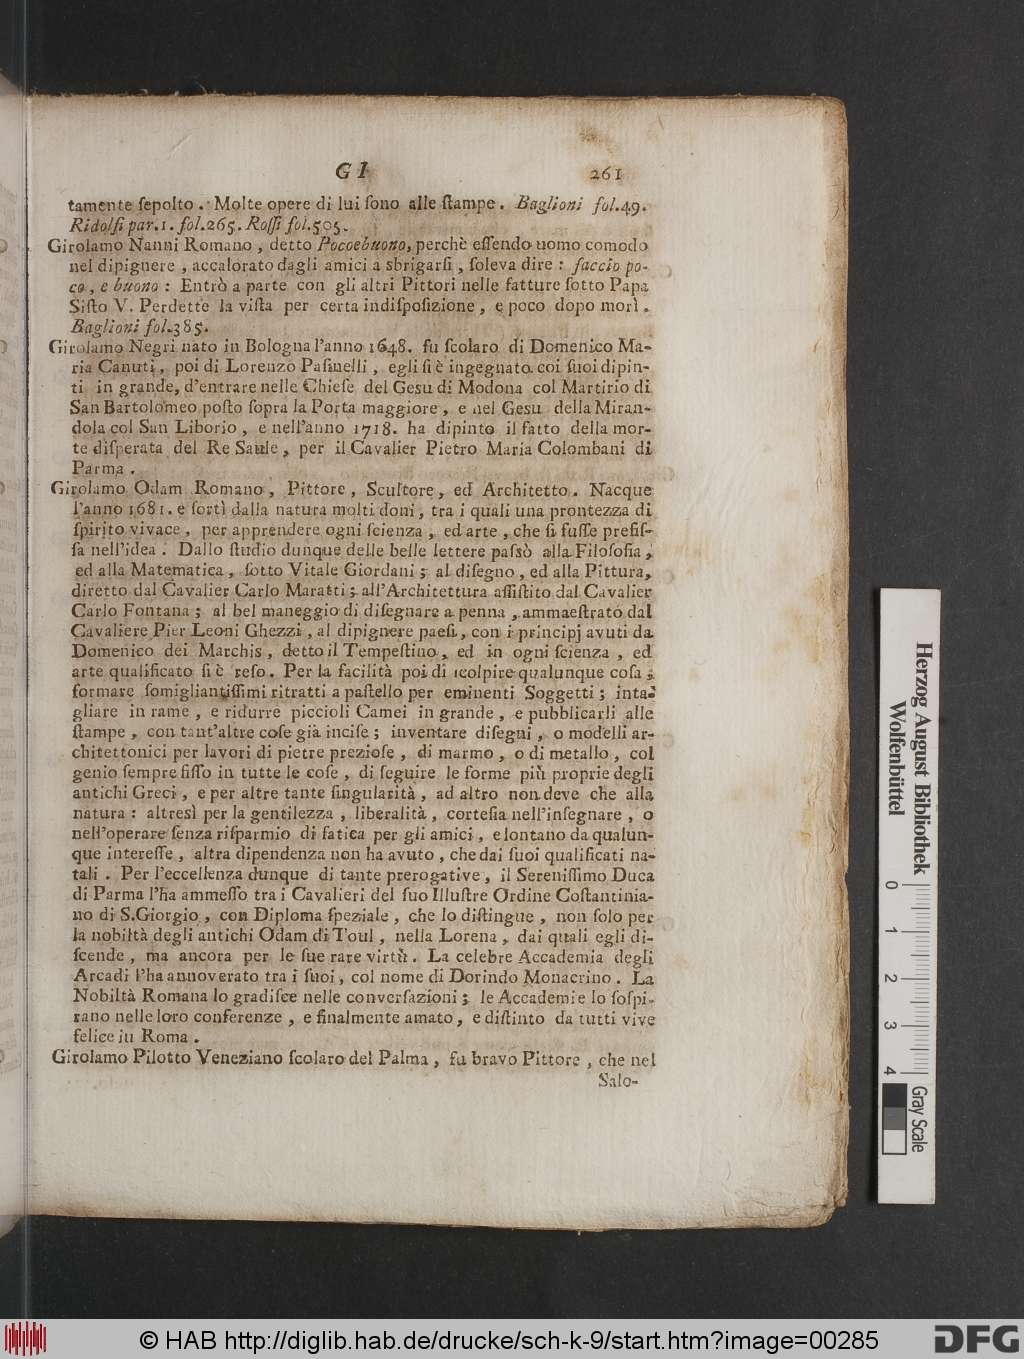 GI 261
tamente ſepolto. Molte opere di lui ſono alle ſtampe. Baglioni fol.49.
Ridolfi par.1. fol.265. Roſſi fol.505.
Girolamo Nanni Romano, detto Pocoebuono, perchè eſſendo uomo comodo
nel dipignere, accalorato dagli amici a sbrigarſi, ſoleva dire: faccio po-
co, e buono: Entrò a parte con gli altri Pittori nelle fatture ſotto Papa
Siſto V. Perdette la viſta per certa indiſpoſizione, e poco dopo morì.
Baglioni fol.385.
Girolamo Negri nato in Bologna l'anno 1648. fu ſcolaro di Domenico Ma-
ria Canuti, poi di Lorenzo Paſinelli, egli ſi è ingegnato coi ſuoi dipin-
ti in grande, d'entrare nelle Chieſe del Gesu di Modona col Martirio di
San Bartolomeo poſto ſopra la Porta maggiore, e nel Gesu della Miran-
dola col San Liborio, e nell'anno 1718. ha dipinto il fatto della mor-
te diſperata del Re Saule, per il Cavalier Pietro Maria Colombani di
Parma.
Girolamo Odam Romano, Pittore, Scultore, ed Architetto. Nacque
l'anno 1681. e ſortì dalla natura molti doni, tra i quali una prontezza di
ſpirito vivace, per apprendere ogni ſcienza, ed arte, che ſi fuſſe prefiſ-
ſa nell'idea. Dallo ſtudio dunque delle belle lettere paſsò alla Filoſofia,
ed alla Matematica, ſotto Vitale Giordani; al diſegno, ed alla Pittura,
diretto dal Cavalier Carlo Maratti; all'Architettura aſſiſtito dal Cavalier
Carlo Fontana; al bel maneggio di diſegnare a penna, ammaeſtrato dal
Cavaliere Pier Leoni Ghezzi, al dipignere paeſi, con i principj avuti da
Domenico dei Marchis, detto il Tempeſtino, ed in ogni ſcienza, ed
arte qualificato ſi è reſo. Per la facilità poi di ſcolpire qualunque coſa;
formare ſomigliantiſſimi ritratti a paſtello per eminenti Soggetti; inta-
gliare in rame, e ridurre piccioli Camei in grande, e pubblicarli alle
ſtampe, con tant'altre coſe già inciſe; inventare diſegni, o modelli ar-
chitettonici per lavori di pietre prezioſe, di marmo, o di metallo, col
genio ſempre fiſſo in tutte le coſe, di ſeguire le forme più proprie degli
antichi Greci, e per altre tante ſingularità, ad altro non deve che alla
natura: altresì per la gentilezza, liberalità, corteſia nell'inſegnare, o
nell'operare ſenza riſparmio di fatica per gli amici, e lontano da qualun-
que intereſſe, altra dipendenza non ha avuto, che dai ſuoi qualificati na-
tali. Per l'eccellenza dunque di tante prerogative, il Sereniſſimo Duca
di Parma l'ha ammeſſo tra i Cavalieri del ſuo Illuſtre Ordine Coſtantinia-
no di S.Giorgio, con Diploma ſpeziale, che lo diſtingue, non ſolo per
la nobiltà degli antichi Odam di Toul, nella Lorena, dai quali egli di-
ſcende, ma ancora per le ſue rare virtù. La celebre Accademia degli
Arcadi l'ha annoverato tra i ſuoi, col nome di Dorindo Monacrino. La
Nobiltà Romana lo gradiſce nelle converſazioni; le Accademie lo ſoſpi-
rano nelle loro conferenze, e finalmente amato, e diſtinto da tutti vive
felice in Roma.
Girolamo Pilotto Veneziano ſcolaro del Palma, fu bravo Pittore, che nel
Salo-
Herzog August Bibliothek
Wolfenbüttel
0 1 2 3 4
Gray Scale
© HAB http://diglib.hab.de/drucke/sch-k-9/start.htm?image=00285
DFG